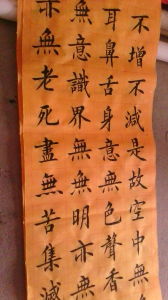 不增不減是故空中無
耳鼻舌身意無色聲香
無意識界無無明亦無
亦無老死盡無苦集滅